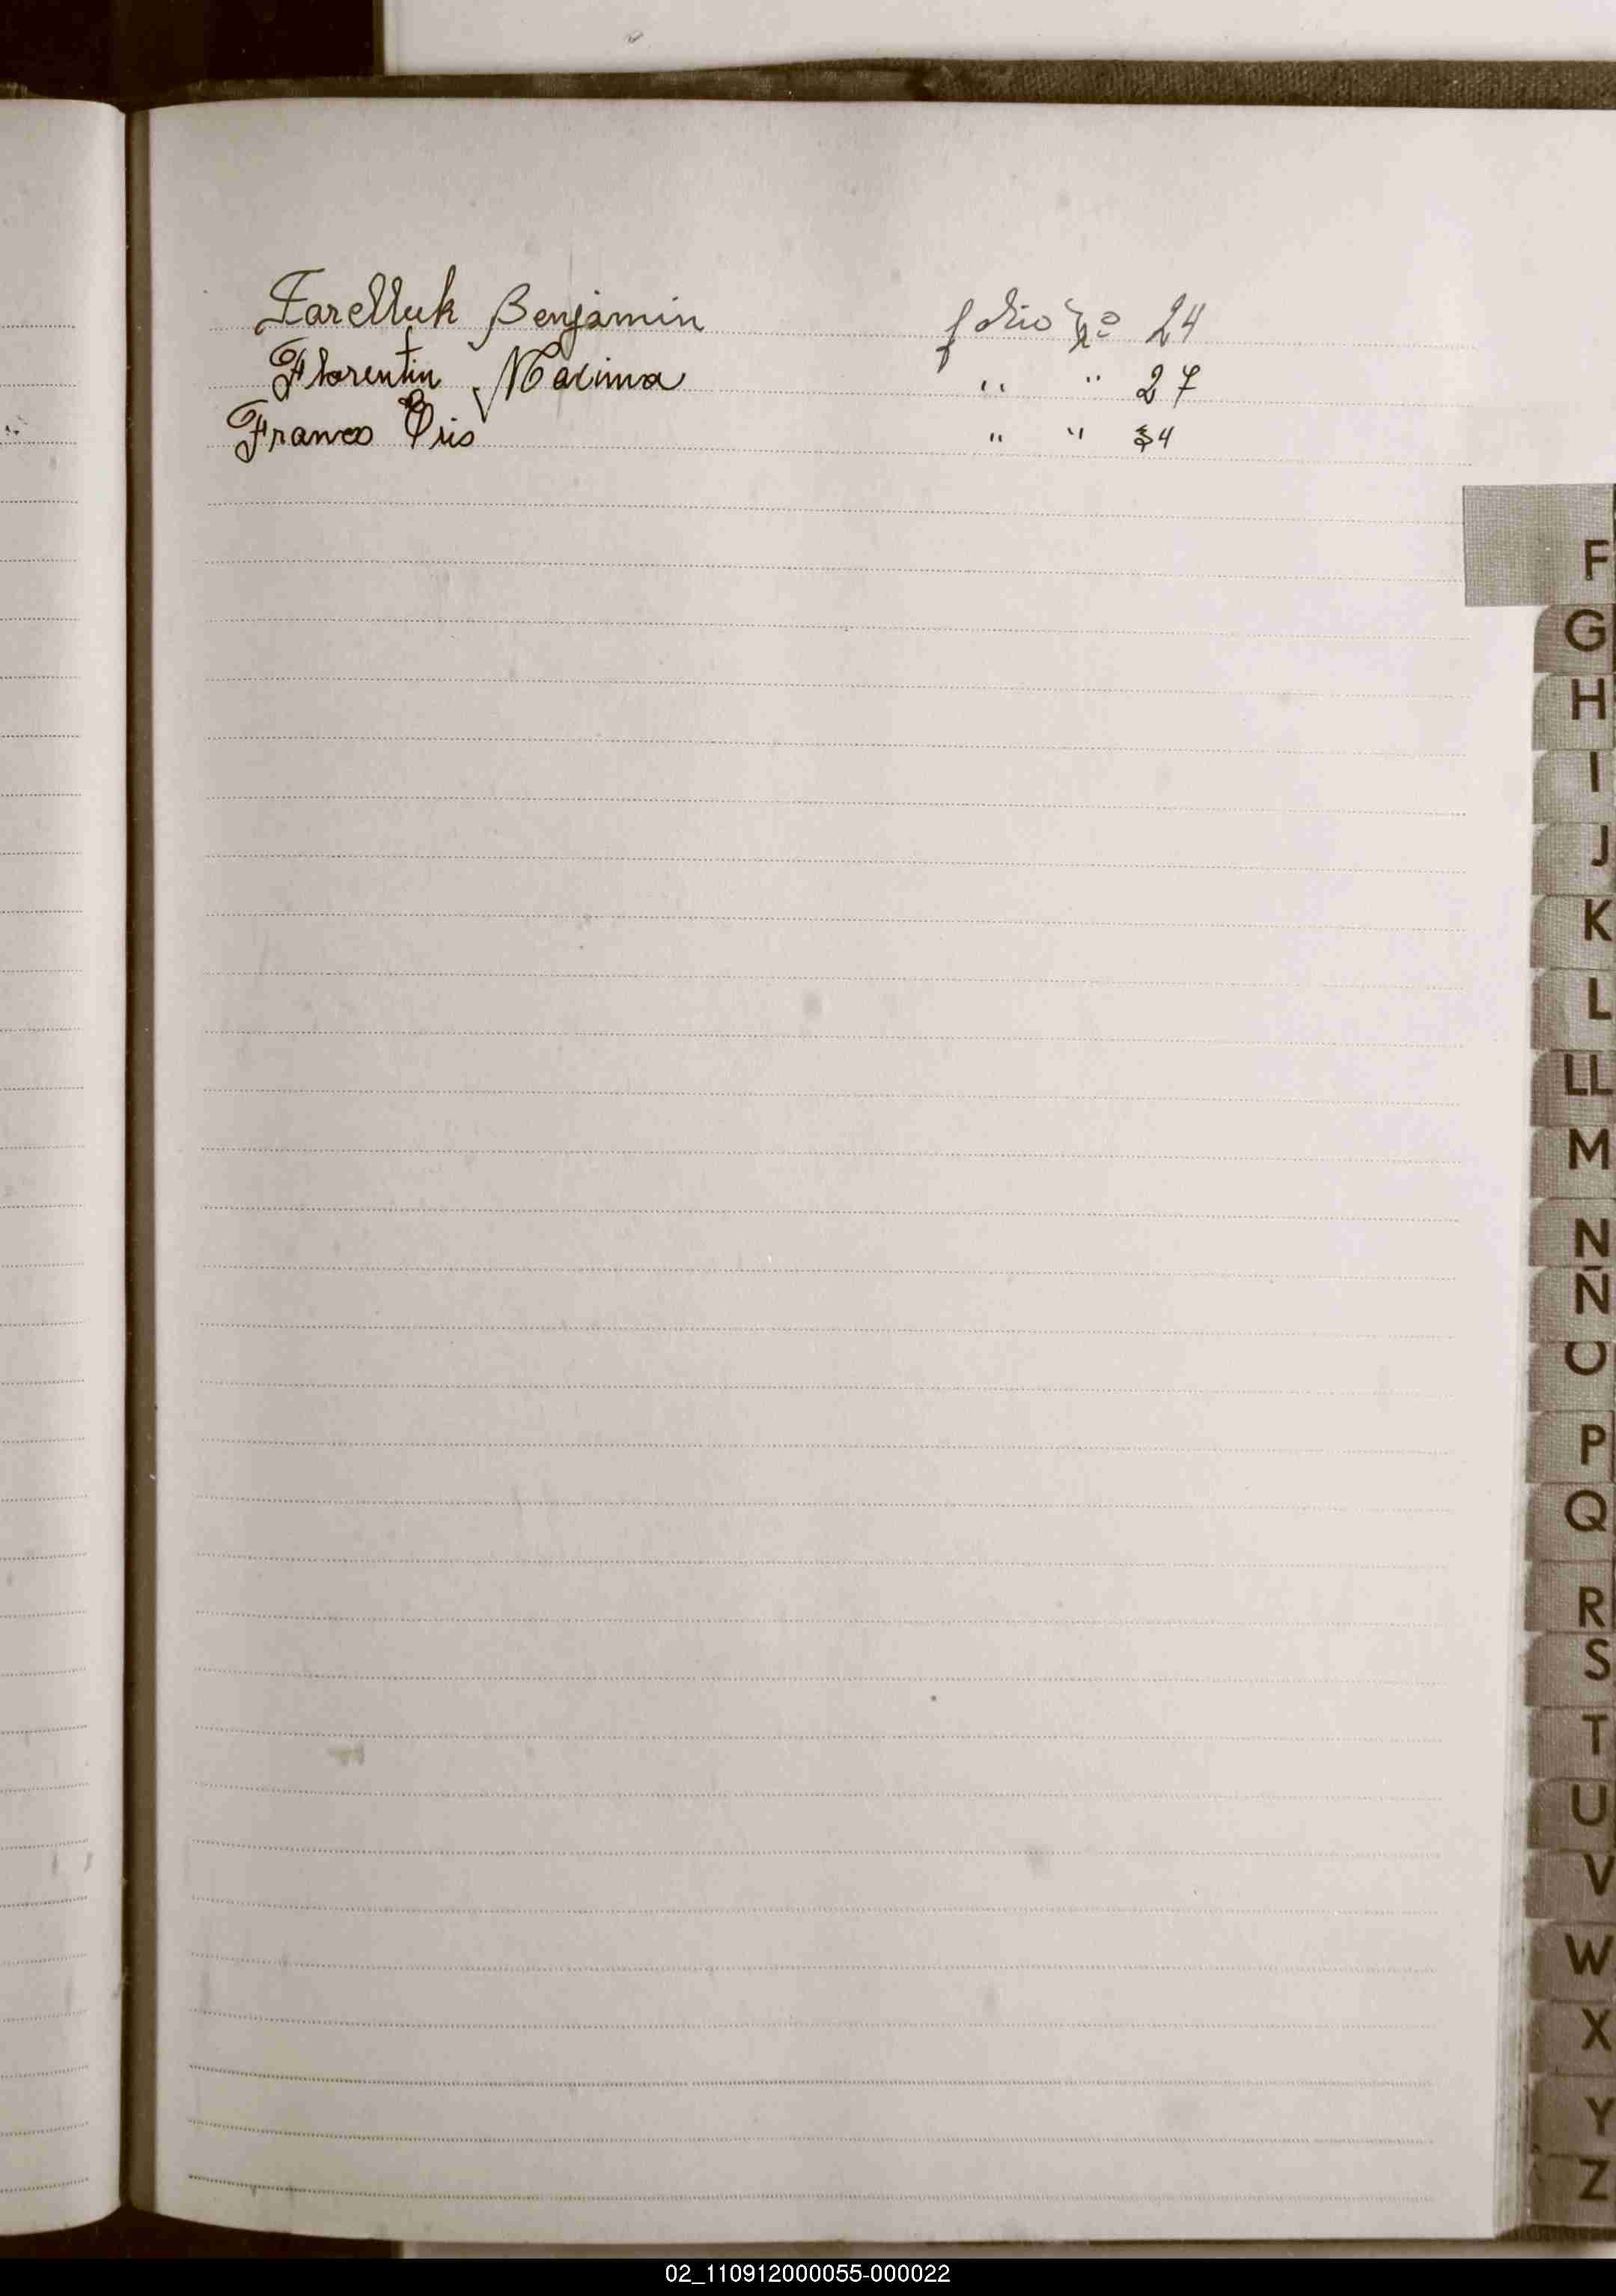 Farelluk Benjamin folio No 24
Florentin Maxima " " 27
Franco " " 34
F
G
H
I
J
K
L
LL
M
N
Ñ
O
P
Q
R
S
T
U
V
W
X
Y
Z
02_110912000055-000022